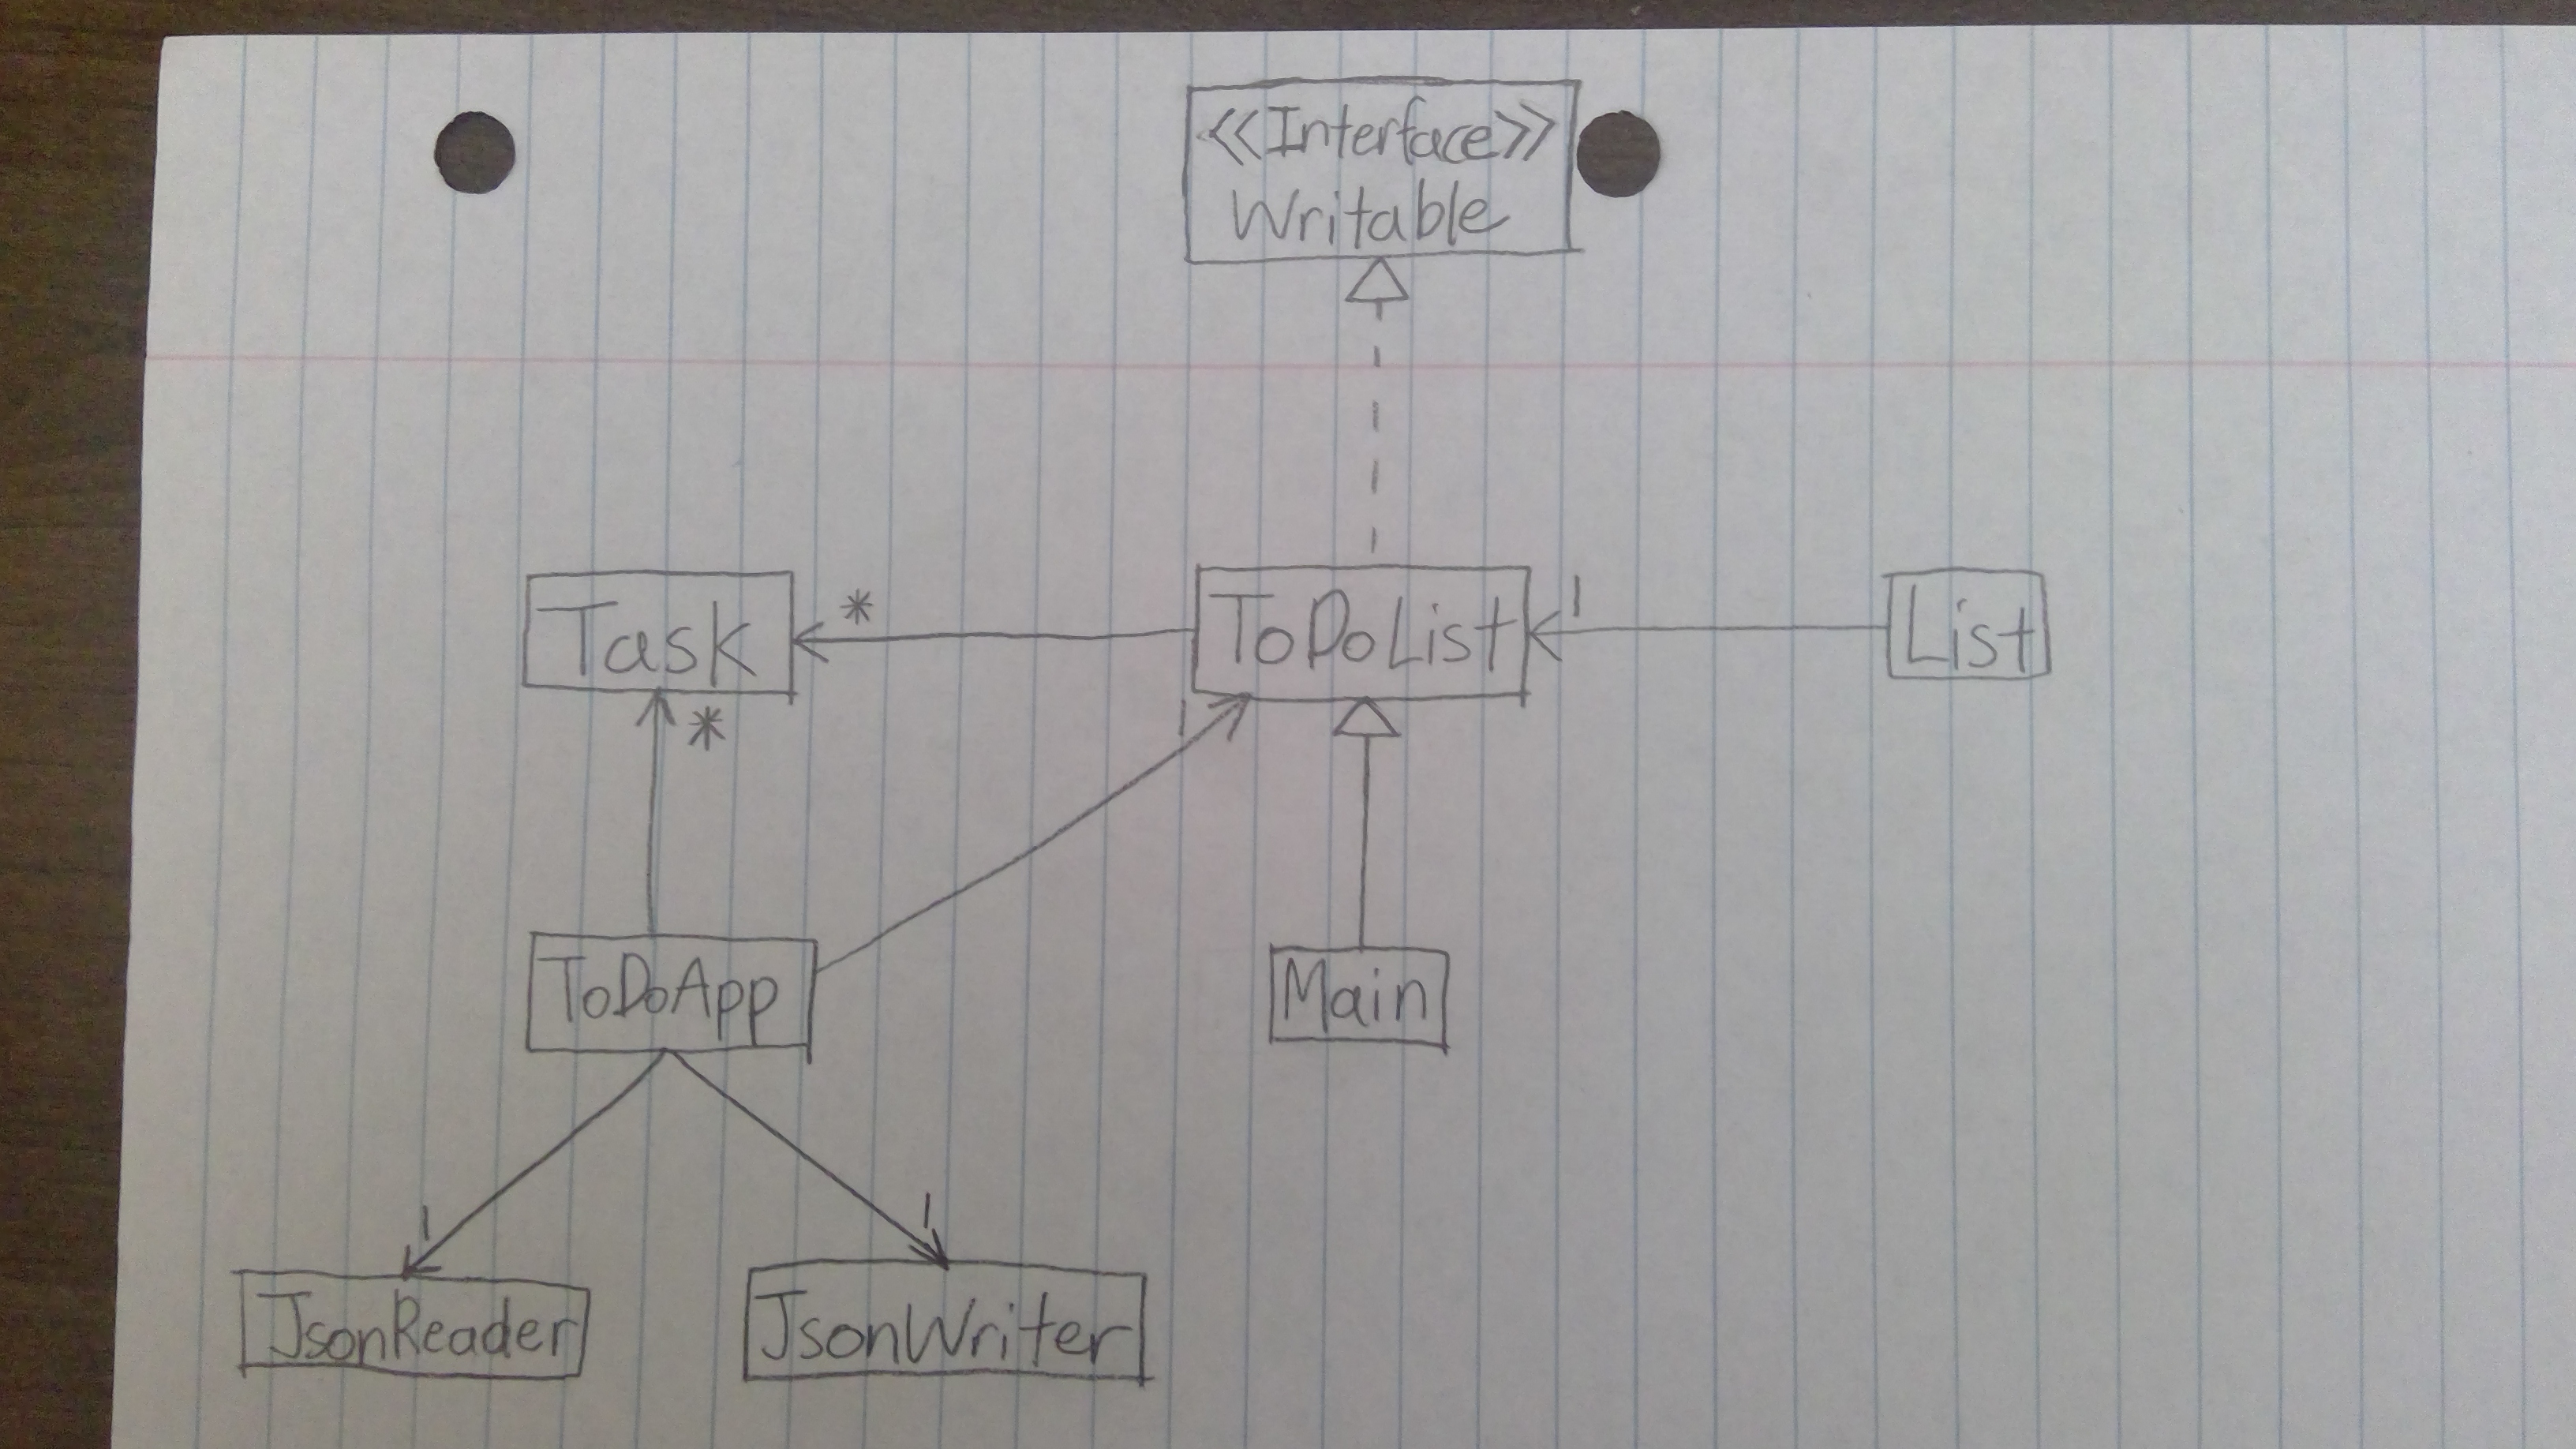 <<Interface>>
Writable
Task
*
ToDoList
1
List
*
1
ToDoApp
Main
1
1
JsonReader
JsonWriter